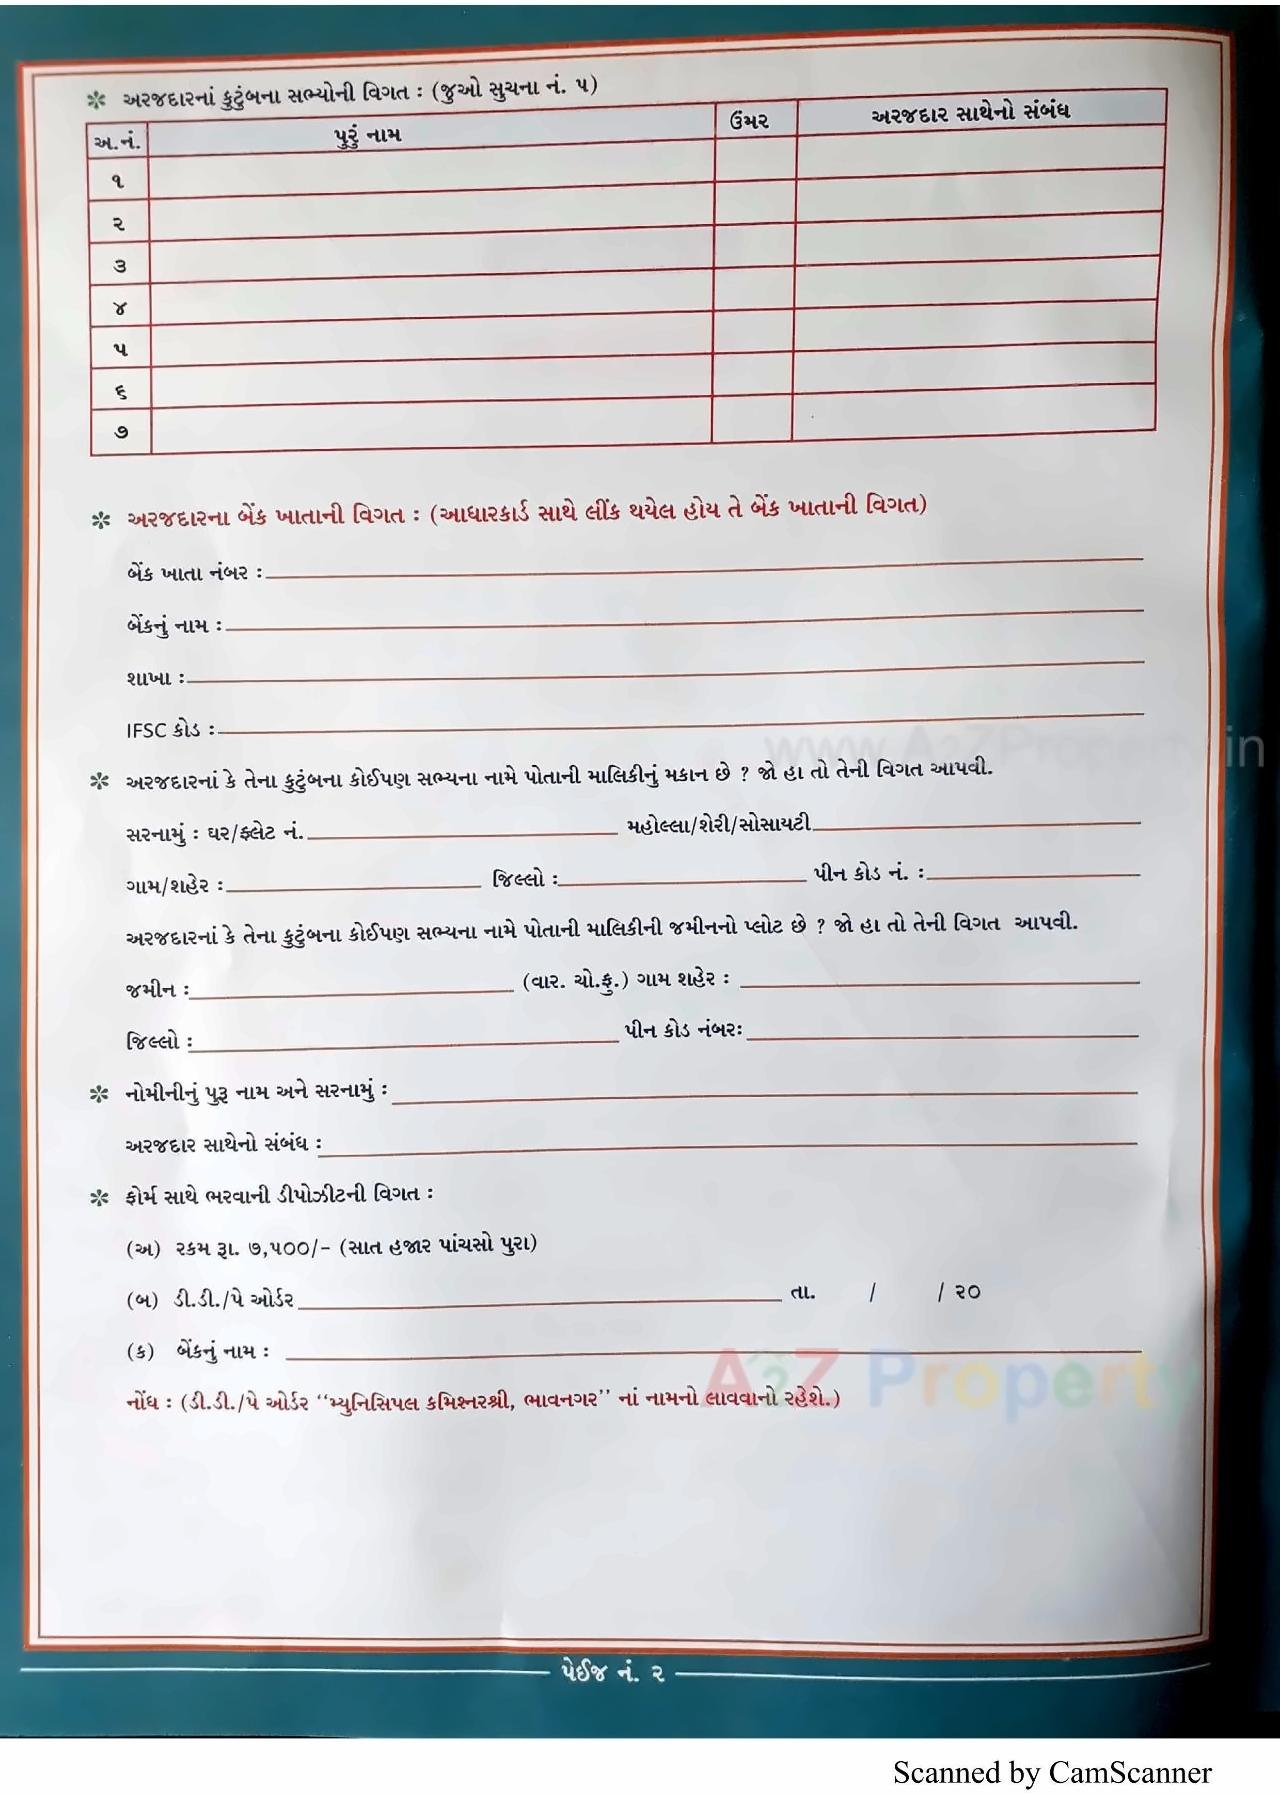 ✽ અરજદારનાં કુટુંબના સભ્યોની વિગત : (જુઓ સુચના નં. ૫)
અ.નં. પુરું નામ ઉંમર અરજદાર સાથેનો સંબંધ
૧
૨
૩
૪
૫
૬
૭
✽ અરજદારના બેંક ખાતાની વિગત : (આધારકાર્ડ સાથે લીંક થયેલ હોય તે બેંક ખાતાની વિગત)
બેંક ખાતા નંબર :
બેંકનું નામ :
શાખા :
IFSC કોડ :
www.A2ZProperty.in
✽ અરજદારનાં કે તેના કુટુંબના કોઈપણ સભ્યના નામે પોતાની માલિકીનું મકાન છે ? જો હા તો તેની વિગત આપવી.
સરનામું : ઘર/ફ્લેટ નં. મહોલ્લા/શેરી/સોસાયટી
ગામ/શહેર : જિલ્લો : પીન કોડ નં. :
અરજદારનાં કે તેના કુટુંબના કોઈપણ સભ્યના નામે પોતાની માલિકીની જમીનનો પ્લોટ છે ? જો હા તો તેની વિગત આપવી.
જમીન : (વાર. ચો.ફુ.) ગામ શહેર :
જિલ્લો : પીન કોડ નંબરઃ
✽ નોમીનીનું પુરૂ નામ અને સરનામું :
અરજદાર સાથેનો સંબંધ :
✽ ફોર્મ સાથે ભરવાની ડીપોઝીટની વિગત :
(અ) રકમ રૂા. ૭,૫૦૦/- (સાત હજાર પાંચસો પુરા)
(બ) ડી.ડી./પે ઓર્ડર તા. / / ૨૦
(ક) બેંકનું નામ :
A2Z Property
નોંધ : (ડી.ડી./પે ઓર્ડર “મ્યુનિસિપલ કમિશ્નરશ્રી, ભાવનગર” નાં નામનો લાવવાનો રહેશે.)
પેઈજ નં. ૨
Scanned by CamScanner